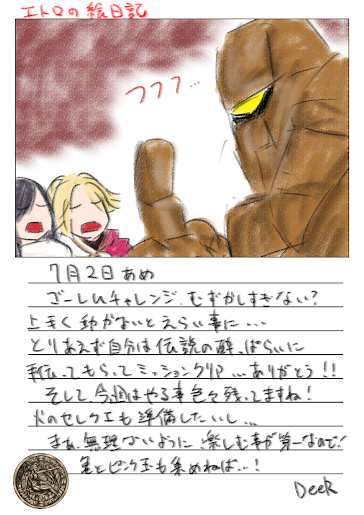 エトロの絵日記
フフフ…
7月2日 あめ
ゴーレムチャレンジ、むずかしすぎない?
上手く動かないとえらい事に...
とりあえず自分は伝説の酔っぱらいに
手伝ってもらってミッションクリア...ありがとう!!
そして今週はやる事色々残ってますね!
火のセレクエも準備したいし...
まぁ、無理ないように楽しむ事が第一なので!
金とピンク玉も集めねば…!
Deek